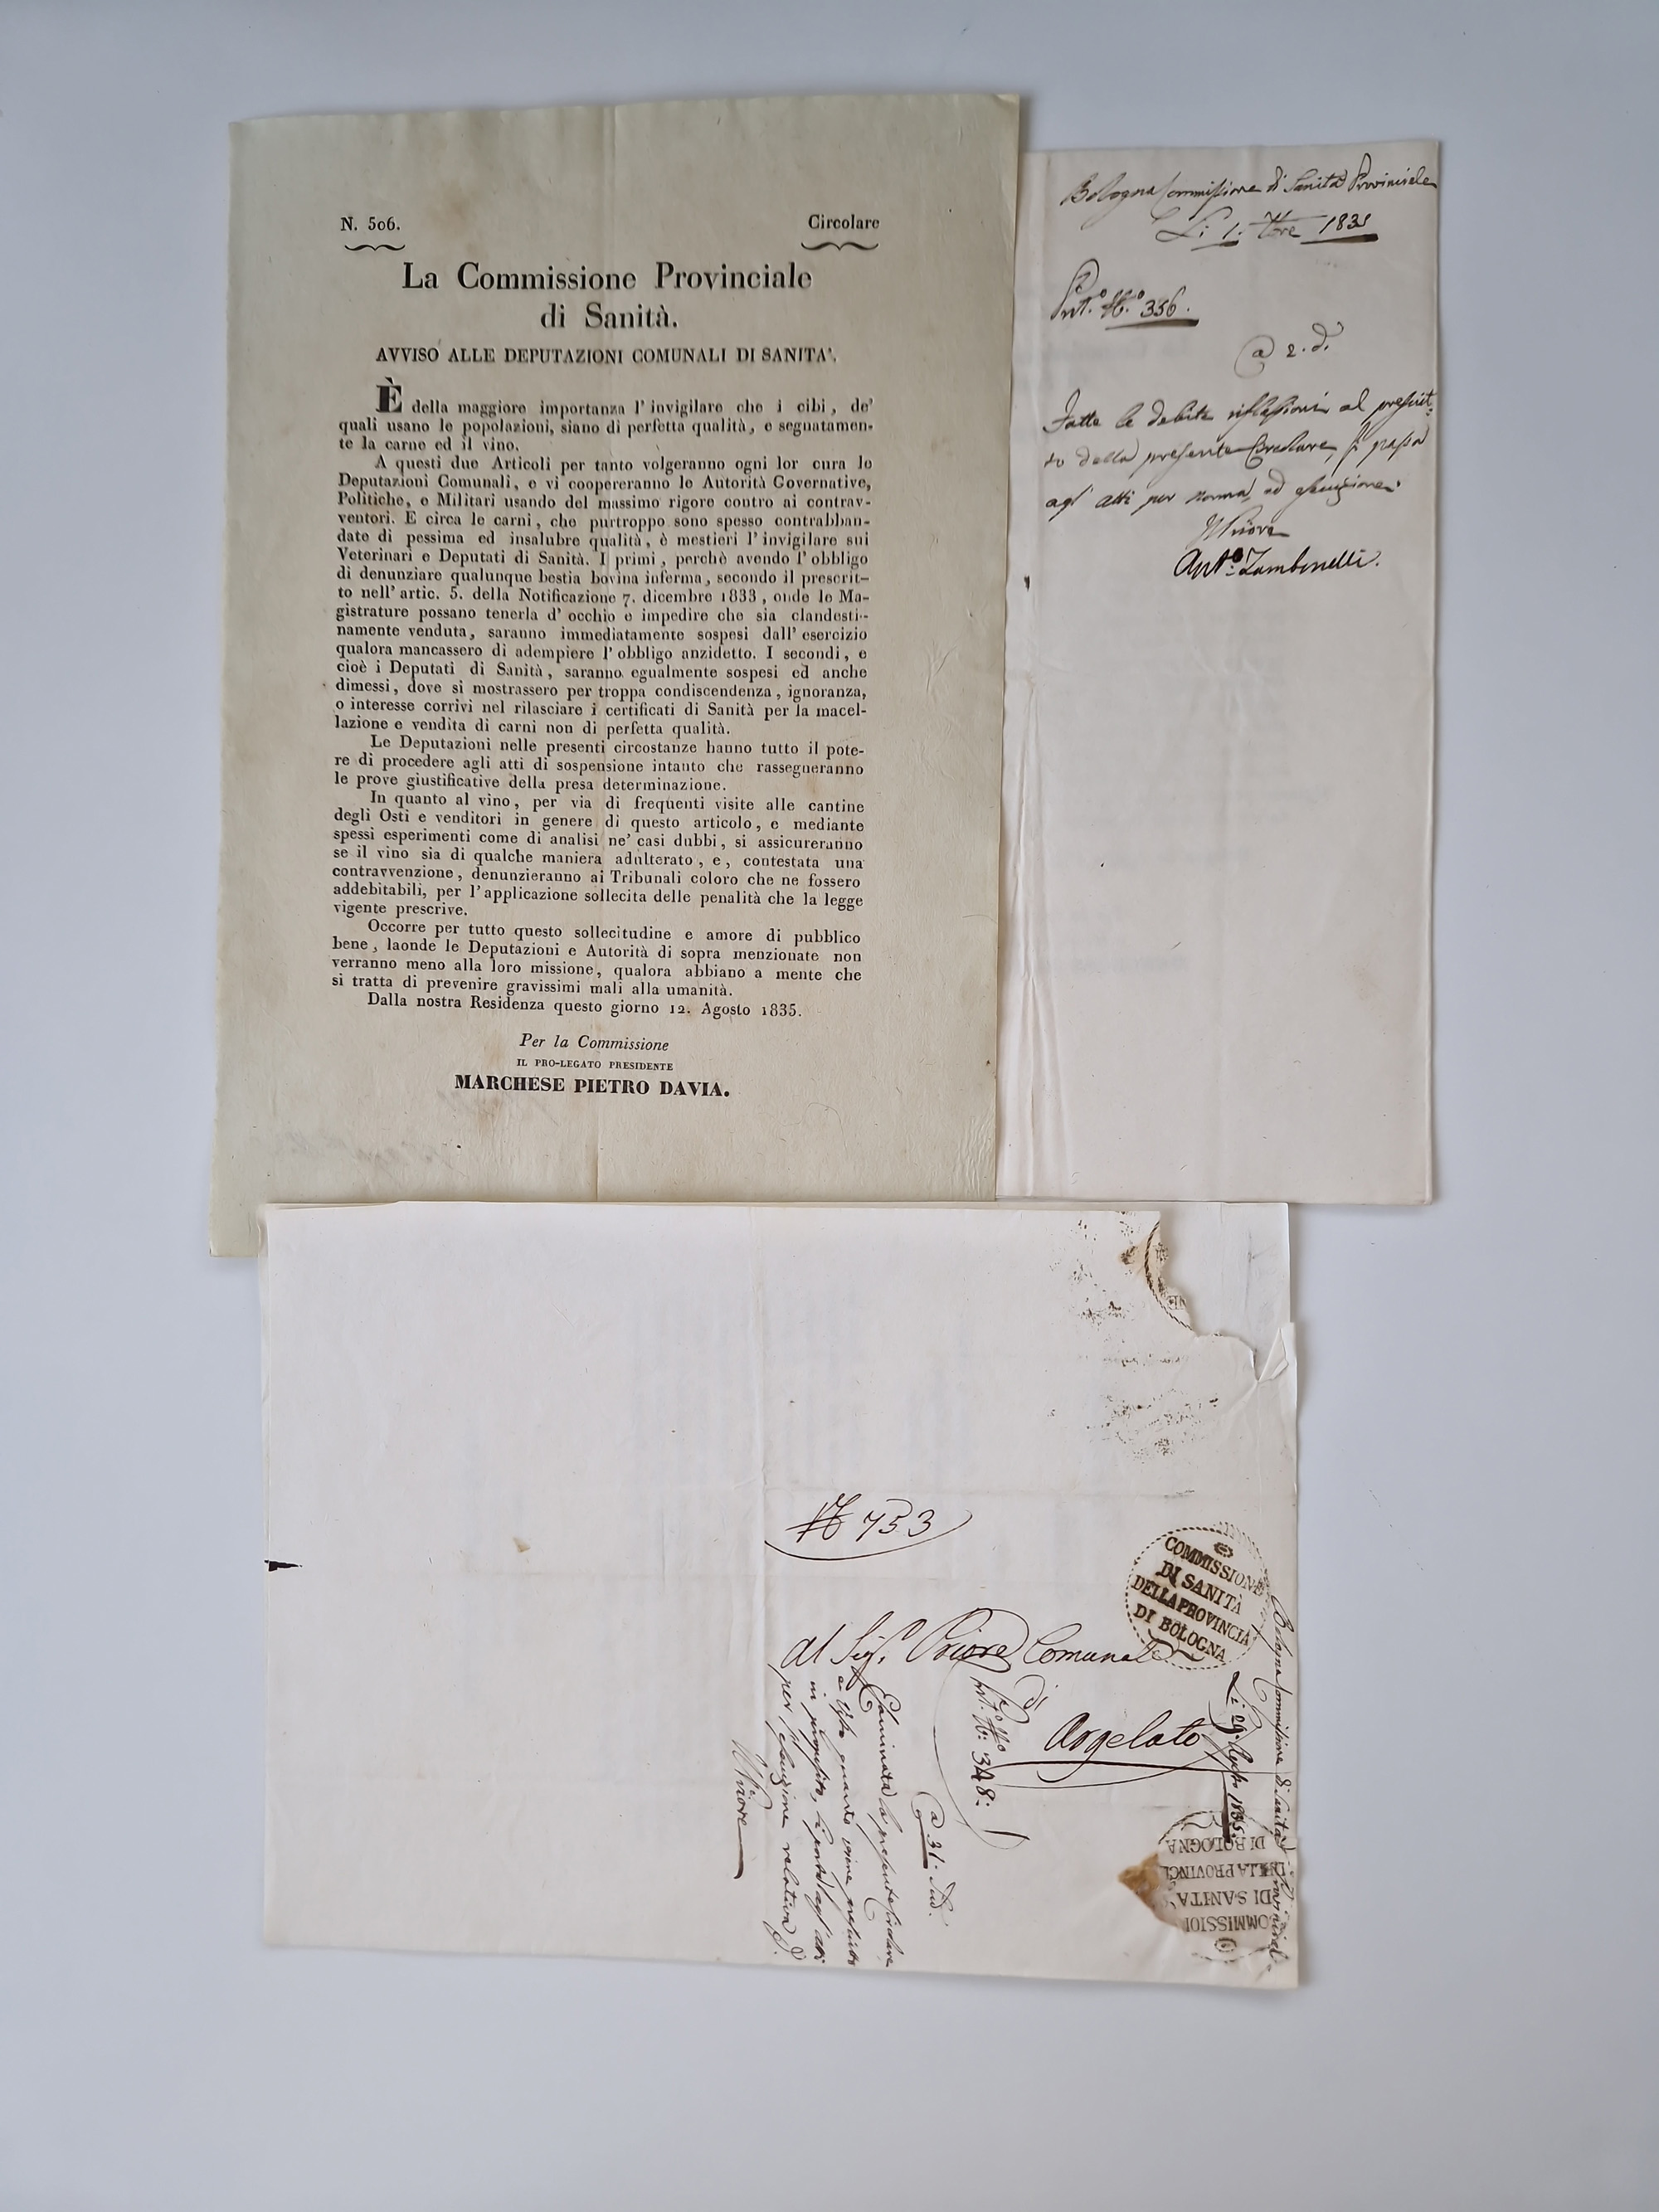 N. 506.
Circolare
La Commissione Provinciale
di Sanità.
AVVISO ALLE DEPUTAZIONI COMUNALI DI SANITA'.
È della maggiore importanza l'invigilare che i cibi, de'
quali usano le popolazioni, siano di perfetta qualità, e segnatamen-
te la carne ed il vino.
A questi due Articoli per tanto volgeranno ogni lor cura le
Deputazioni Comunali, e vi coopereranno le Autorità Governative,
Politiche, e Militari usando del massimo rigore contro ai contrav-
ventori. E circa le carni, che purtroppo sono spesso contrabban-
date di pessima ed insalubre qualità, è mestieri l'invigilare sui
Veterinari e Deputati di Sanità. I primi, perchè avendo l'obbligo
di denunziare qualunque bestia bovina inferma, secondo il prescrit-
to nell'artic. 5. della Notificazione 7. dicembre 1833, onde le Ma-
gistrature possano tenerla d'occhio e impedire che sia clandesti-
namente venduta, saranno immediatamente sospesi dall'esercizio
qualora mancassero di adempiere l'obbligo anzidetto. I secondi, e
cioè i Deputati di Sanità, saranno egualmente sospesi ed anche
dimessi, dove si mostrassero per troppa condiscendenza, ignoranza,
o interesse corrivi nel rilasciare i certificati di Sanità per la macel-
lazione e vendita di carni non di perfetta qualità.
Le Deputazioni nelle presenti circostanze hanno tutto il pote-
re di procedere agli atti di sospensione intanto che rassegneranno
le prove giustificative della presa determinazione.
In quanto al vino, per via di frequenti visite alle cantine
degli Osti e venditori in genere di questo articolo, e mediante
spessi esperimenti come di analisi ne' casi dubbi, si assicureranno
se il vino sia di qualche maniera adulterato, e, contestata una
contravvenzione, denunzieranno ai Tribunali coloro che ne fossero
addebitabili, per l'applicazione sollecita delle penalità che la legge
vigente prescrive.
Occorre per tutto questo sollecitudine e amore di pubblico
bene, laonde le Deputazioni e Autorità di sopra menzionate non
verranno meno alla loro missione, qualora abbiano a mente che
si tratta di prevenire gravissimi mali alla umanità.
Dalla nostra Residenza questo giorno 12. Agosto 1835.
Per la Commissione
IL PRO-LEGATO PRESIDENTE
MARCHESE PIETRO DAVIA.
Bologna Commissione di Sanità Provinciale
Li 1. 7bre 1835
Prot.º N.º 356.
@ 2. d.
Fatte le debite riflessioni al prescrit-
to della presente Circolare, si passa
agl'atti per norma, ed esecuzione.
Il Priore
Ant.º Zambonelli.
N 753
COMMISSIONE
DI SANITÀ
DELLA PROVINCIA
DI BOLOGNA
Al Sig.r Priore Comunale
di
Argelato
Bologna Commissione di Sanità Provincial
Li 29. Agosto 1835.
Prot.º N.º 348:
@ 31. Sud.
Esaminata la presente Circolare
e visto quanto viene prescritto
in proposito, si ponga agl'atti
per esecuzione relativa
Il Priore
COMMISSION
DI SANITÀ
DELLA PROVINCI
DI BOLOGNA